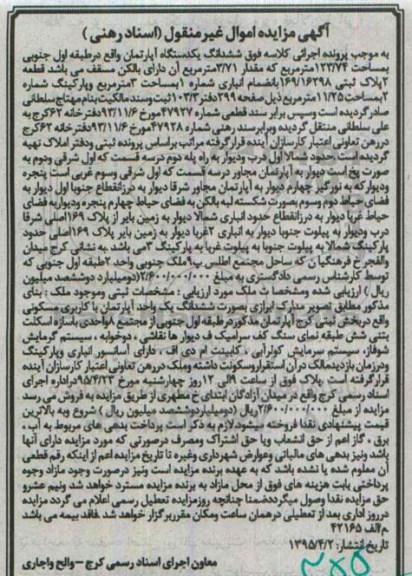 آگهی مزایده اموال غیر منقول (اسناد رهنی)
به موجب پرونده اجرائی کلاسه فوق ششدانگ یکدستگاه آپارتمان واقع درطبقه اول جنوبی
بمساحت ۱۲۳/۷۴مترمربع که مقدار ۳/۷۱مترمربع آن دارای بالکن مسقف می باشد قطعه
۲پلاک ثبتی ۱۶۹/۱۶۲۹۸بانضمام انباری شماره ۱بمساحت ۳مترمربع وپارکینگ شماره
۲بمساحت۱۱/۲۵مترمربع ذیل صفحه ۲۹۹دفتر۱۰۳/۳ثبت وسند مالکیت بنام مهتاج سلطانی
صادرگردیده است وسپس برابر سند قطعی شماره ۴۷۹۲۷مورخ۹۳/۱۱/۶دفترخانه ۶۲کرج به
علی سلطانی منتقل گردیده وبرابرسند رهنی شماره ۴۷۹۲۸مورخ ۹۳/۱۱/۶دفترخانه ۶۲کرج
دررهن تعاونی اعتبار کارسازان آینده قرارگرفته مراتب براساس پرونده ثبتی ودفتر املاک تهیه
گردیده است .حدود شمالا اول درب ودیوار به راه پله دوم درسه قسمت که اول شرقی ودوم به
صورت پخ است دیوار به آپارتمان مجاور درسه قسمت که اول شرقی وسوم غربی است پنجره
ودیوارکه به نورگیر چهارم دیوار به آپارتمان مجاور شرقا دیوار به درزانقطاع جنوبا اول دیوار به
فضای حیاط دوم وسوم بصورت شکسته لبه بالکن به فضای حیاط چهارم پنجره ودیواربه فضای
حیاط غربا دیوار به درزانقطاع حدود انباری شمالا دیوار به زمین بایر از پلاک ۱۶۹اصلی شرقا
درب ودیوار به پیلوت جنوبا دیوار به انباری ۲غربا دیوار به زمین بایر پلاک ۱۶۹اصلی حدود
پارکینگ شمالا به پیلوت جنوبا به پیلوت غربا به پارکینگ ۳می باشد .به نشانی کرج میدان
والفجرخ فرهنگیان که ساحل مجتمع اطلس پ۹ملک جنوبی واحد ۲طبقه اول جنوبی که
توسط کارشناس رسمی دادگستری به مبلغ ۲/۶۰۰/۰۰۰/۰۰۰(دومیلیارد دوششصد میلیون
ریال ) ارزیابی شده ومشخصات ملک مورد ارزیابی : مشخصات ثبتی وموجود ملک : بنای
مذکور مطابق تصویر مدارک ابرازی بصورت ششدانگ یک واحد آپارتمان با کاربری مسکونی
واقع دربخش ثبتی کرج آپارتمان مذکوردرطبقه اول جنوبی از مجتمع ۸واحدی باسازه اسکلت
بتنی شش طبقه نمای سنگ کف سرامیک ف دیوار ها نقاشی ، دوخوابه ، سیستم گرمایش
شوفاژ، سیستم سرمایش کولرآبی ، کابینت ام دی اف ، دارای آسانسور انباری وپارکینگ
ودرزمان بازدیدمالک درآن استقراروسکونت داشته وملک دررهن تعاونی اعتبار کارسازان آینده
قرارگرفته است پلاک فوق از ساعت ۹الی ۱۲ روز چهارشنبه مورخ ۹۵/۴/۲۳دراداره اجرای
اسناد رسمی کرج واقع در میدان آزادگان ابتدای خ مطهری از طریق مزایده به فروش می رسد
مزایده از مبلغ ۲/۶۰۰/۰۰۰/۰۰۰ریال (دومیلیاردوششصد میلیون ریال ) شروع وبه بالاترین
قیمت پیشنهادی نقدا فروخته میشود.لازم به ذکر است پرداخت بدهی های مربوط به آب ،
برق ، گاز اعم از حق انشعاب ویا حق اشتراک ومصرف درصورتی که مورد مزایده دارای آنها
باشد ونیز بدهی های مالیاتی وعوارض شهرداری وغیره تا تاریخ مزایده اعم از اینکه رقم قطعی
آن معلوم شده یا نشده باشد که به عهده برنده مزایده است ونیز درصورت وجود مازاد وجوه
پرداختی بابت هزینه های فوق از محل مازاد به برنده مزایده مسترد خواهد شد ونیم عشرو
حق مزایده نقدا وصول میگرددضمنا چنانچه روزمزایده تعطیل رسمی اعلام می گردد مزایده
درروز اداری بعد از تعطیلی درهمان ساعت ومکان مقرربرگزار خواهد شد .فاقد بیمه می باشد
م/الف ۴۲۱۶۵
تاریخ انتشار: ۱۳۹۵/۴/۲
معاون اجرای اسناد رسمی کرج – والح واجاری